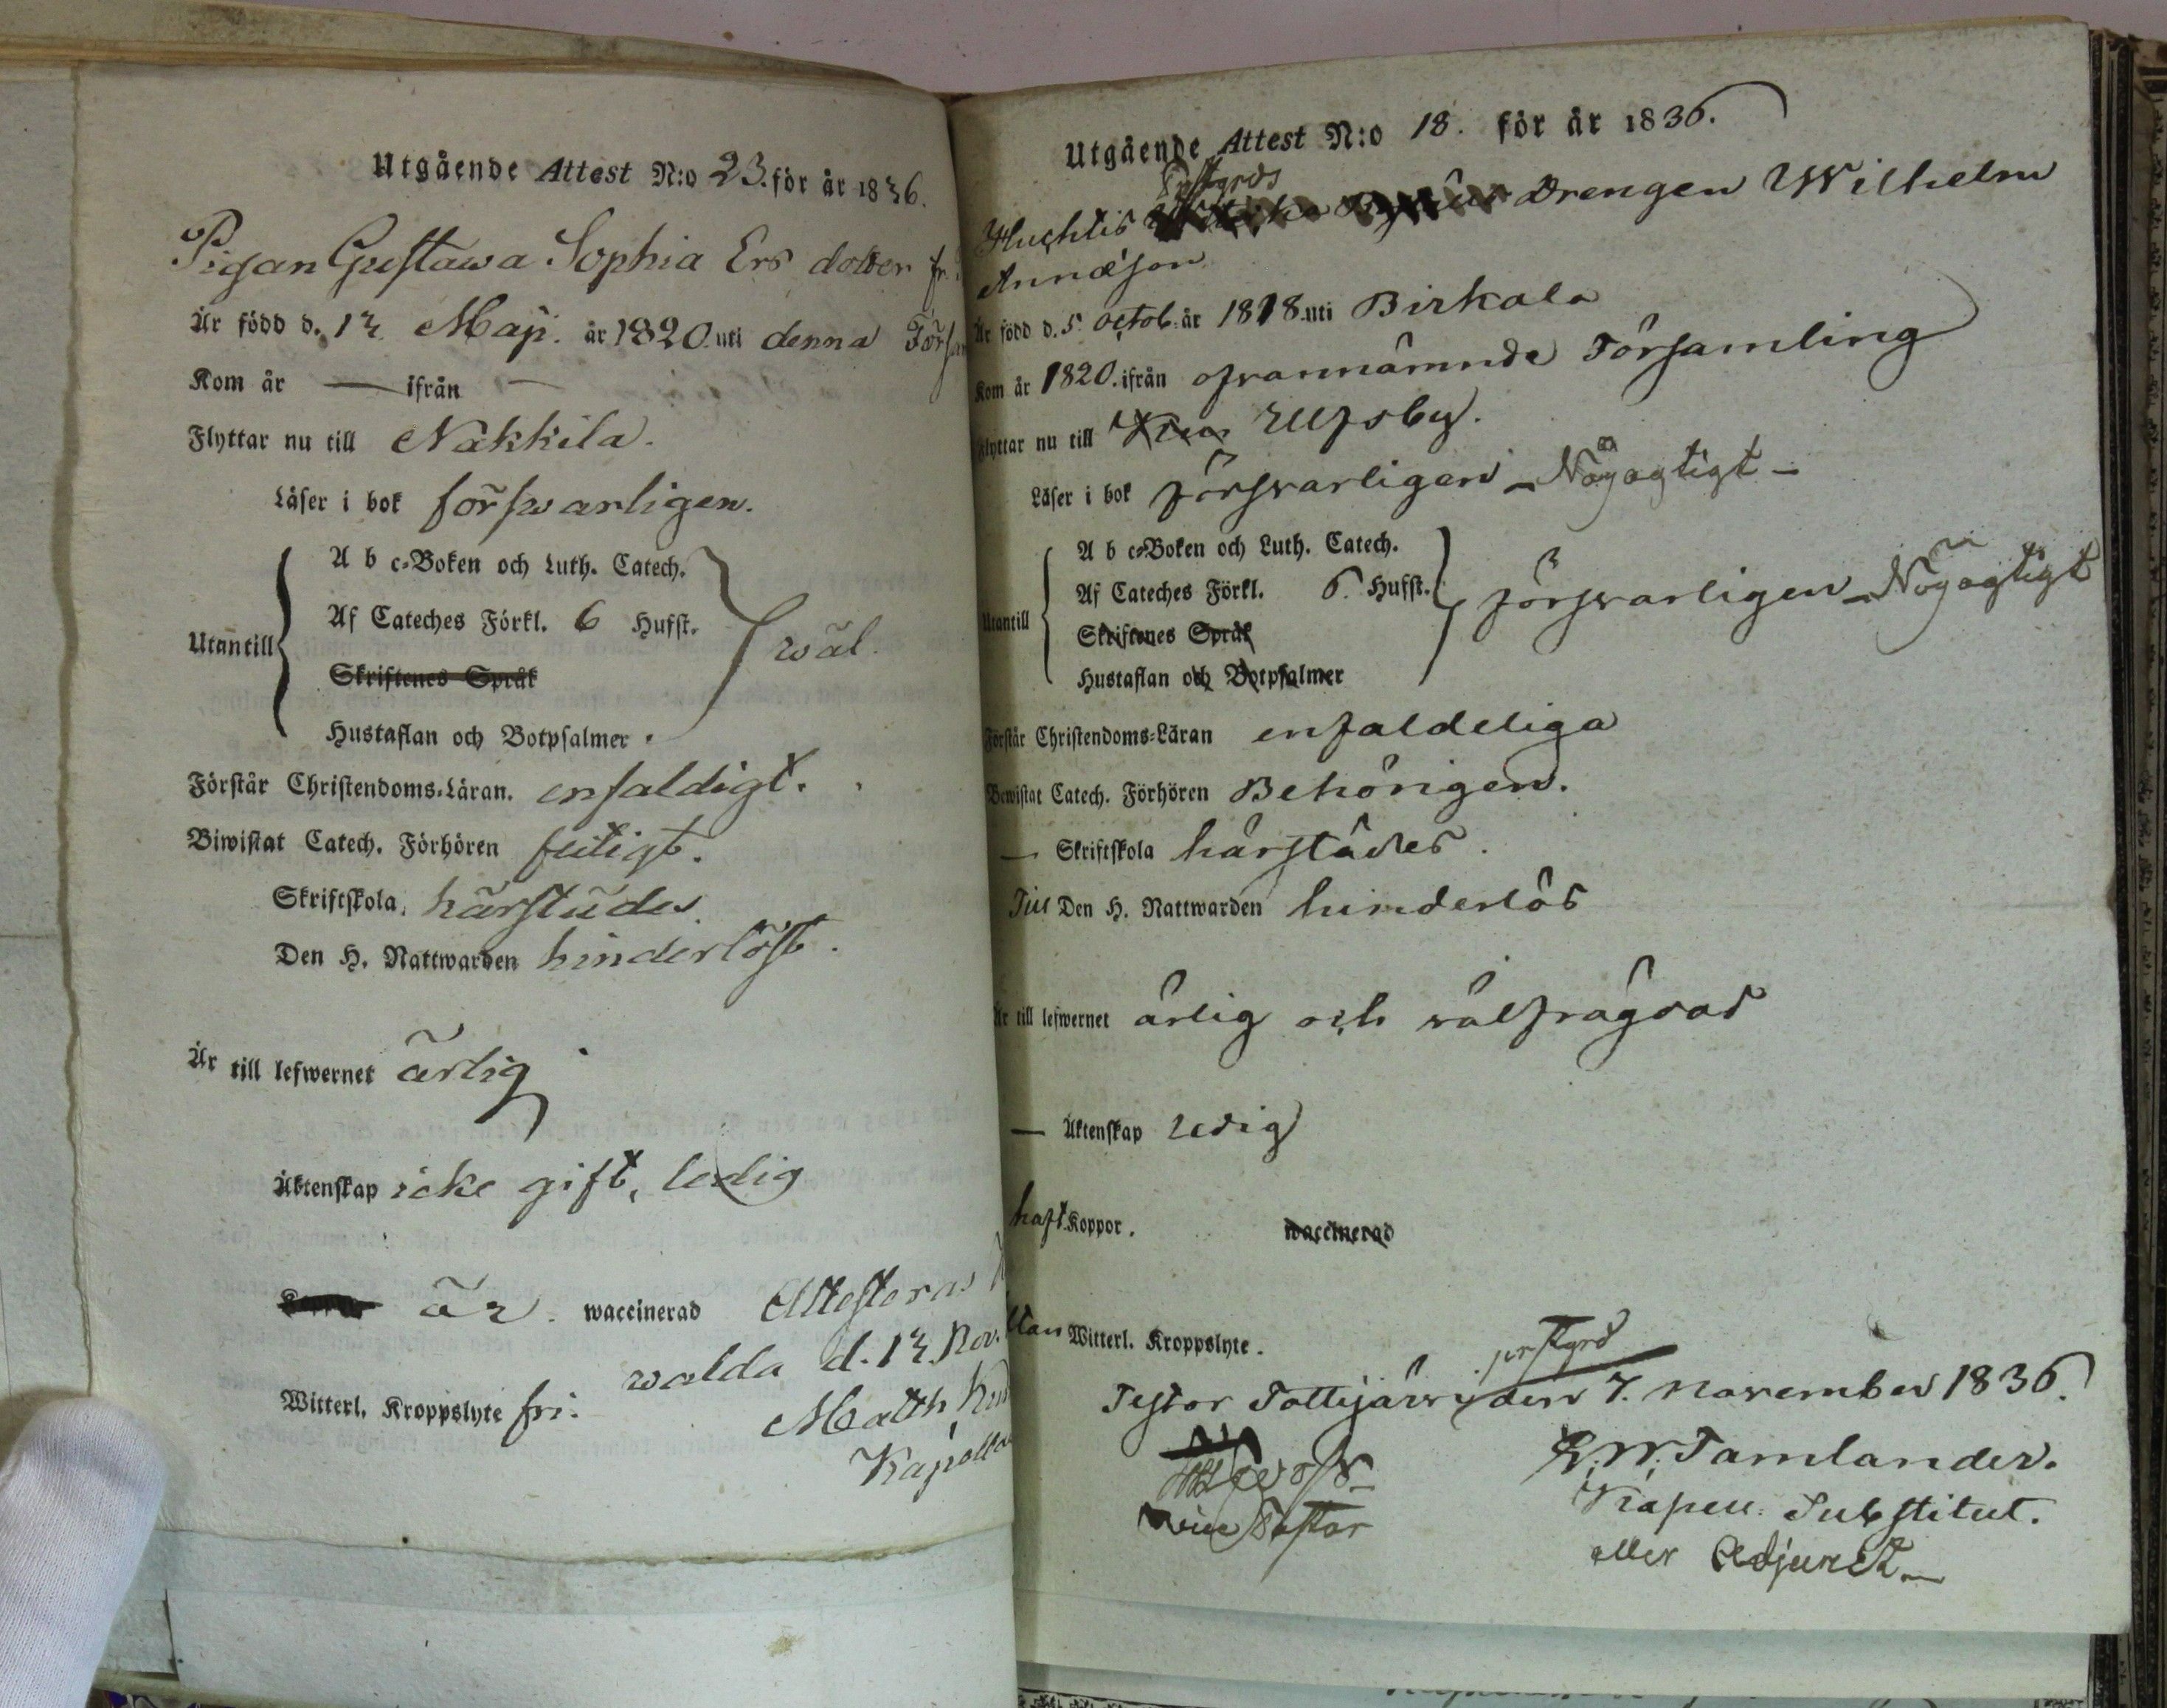 Utgående Attest N:o 23. för år 1836.
Pigan Gustawa Sophia Ers dotter fr.
Är född d. 12. Maji. år 1820. uti denna Förs
Kom år — ifrån —
Flyttar nu till Nakkila.
Läser i bok förswarligen.
Utantill
A b c-Boken och Luth. Catech.
Af Cateches Förkl. 6 Hufst.
Skriftenes Språk
Hustaflan och Botpsalmer.
wäl.
Förstår Christendoms-Läran. enfaldigt.
Biwistat Catech. Förhören flitigt.
Skriftskola, härstädes
Den H. Nattwarden hinderlöst.
Är till lefwernet ärlig
Äktenskap icke gift, ledig
är. waccinerad Attesteras
walda d. 12. Nov.
Witterl. Kroppslyte fri.
Matth
Kapella
Utgående Attest N:o 18. för år 1836.
Huchtis Drengen Wilhelm
Annæson
Är född d. 5 octob. år 1818. uti Birkala
Kom år 1820. ifrån ofvannämnde Församling
Flyttar nu till Ulfsby.
Läser i bok försvarligen – Nögagtigt –
Utantill
A b c-Boken och Luth. Catech.
Af Cateches Förkl. 6. Hufst.
Skriftenes Språk
Hustaflan och Botpsalmer
försvarligen – Nögagtigt
Förstår Christendoms-Läran enfaldeliga
Bewistat Catech. Förhören Behörigen.
— Skriftskola härstädes.
Till Den H. Nattwarden hinderlös
Är till lefwernet ärlig och välfrägdad
— Äktenskap Ledig
haft Koppor. waccinerad
Utan Witterl. Kroppslyte.
Testor Tottijärvi den 7. November 1836.
Tamlander.
Kapell: Substitut.
vice Pastor
eller Adjunct. —